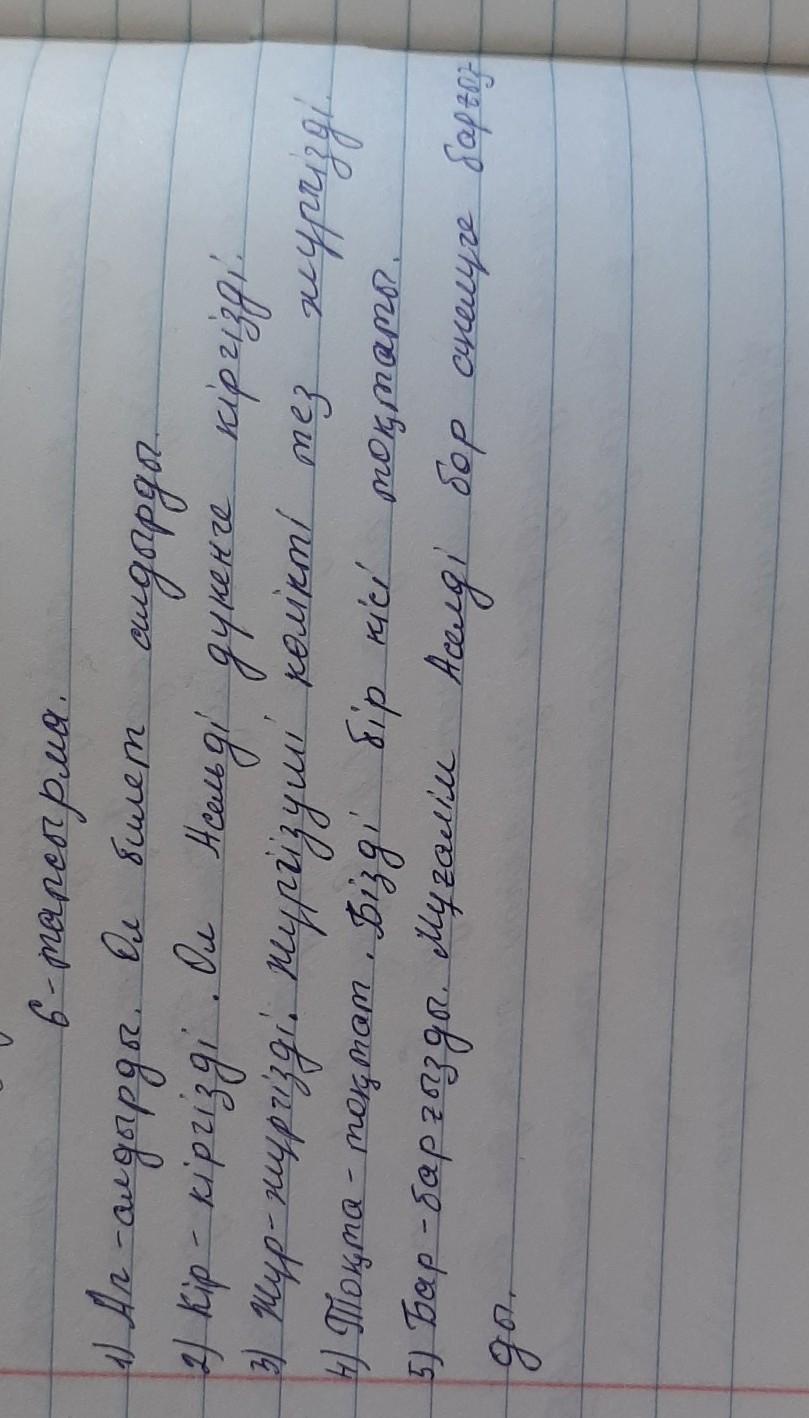 6-тапсырма.
1) Ал-алдырды. Ол билет алдырды.
2) Кір-кіргізді. Ол Асельді дукенге кіргізді.
3) Жүр-жүргізді. Жүргізуші көлікті тез жүргізді.
4) Тоқта-тоқтат. Бізді бір кісі тоқтаты.
5) Бар-барғызды. Мұғалім Аселді бор әкелуге барғыз
ды.